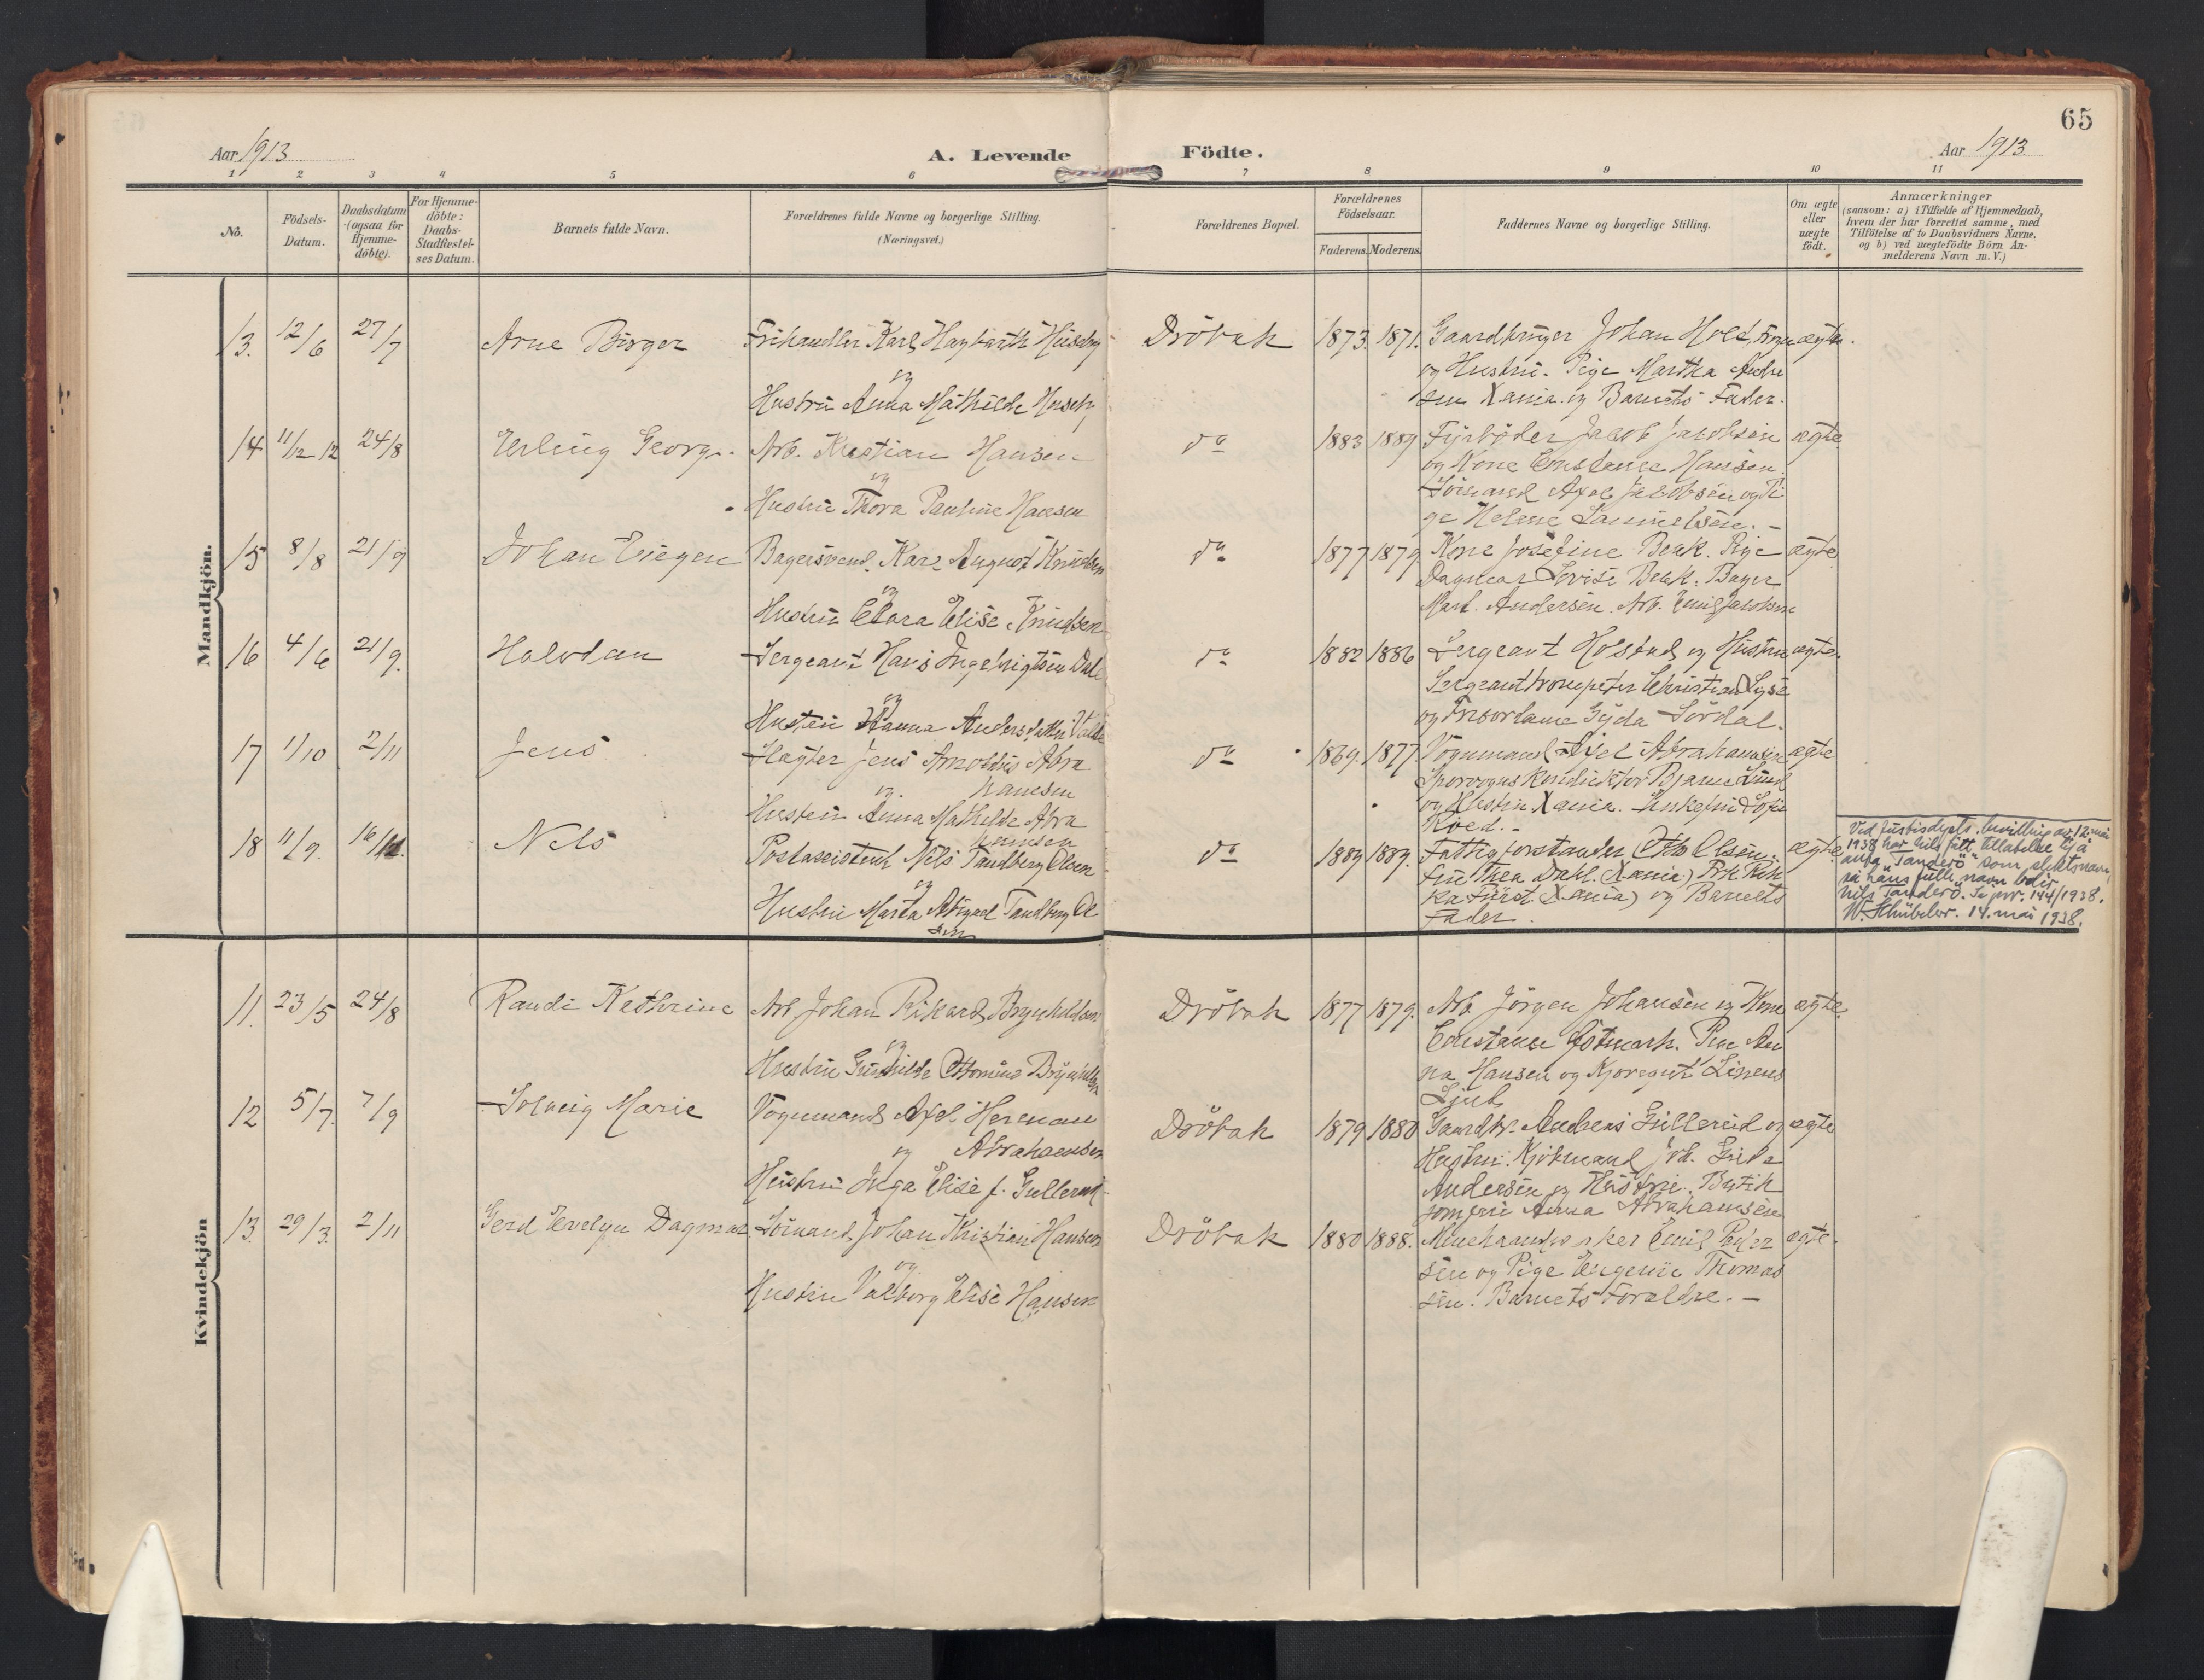 65
Aar 1913
A. Levende Födte.
Aar 1913
1 2 3 4 5 6 7 8 9 10 11
No.
Födsels-
Datum.
Daabsdatum
(ogsaa for
Hjemme-
döbte).
For Hjemme-
döbte:
Daabs-
Stadfæstel-
ses Datum.
Barnets fulde Navn.
Forældrenes fulde Navne og borgerlige Stilling.
(Næringsvei.)
Forældrenes Bopæl.
Forældrenes
Födselsaar.
Faderens. Moderens.
Faddernes Navne og borgerlige Stilling.
Om ægte
eller
uægte
födt.
Anmærkninger
(saasom: a) i Tilfælde af Hjemmedaab,
hvem der har forrettet samme, med
Tilföielse af to Daabsvidners Navne,
og b) ved uægtefödte Börn An-
melderens Navn m.V.)
Mandkjön.
13. 12/6 27/7 Arne Birger
Frihandler Karl Hagbarth Huseby
og
Hustru Anna Mathilde Huseby
Dröbak 1873. 1871. Gaardbruger Johan Holt, ægte.
og Hustru. Pige Martha Andre
sen Xania. og Barnets Fader.
14 11/12 12 24/8 Erling Georg.
Arb. Kristian Hansen
og
Hustru Thora Pauline Hansen
do 1883 1889 Fyrböder Jacob Jacobsen ægte
og Kone Constance Hansen.
Sömand Axel Jacobsen og Pi
ge Helene Samuelsen. -
15 8/8 21/9 Johan Eugen
Bagersvend. Karl August Knudsen
og
Hustru Clara Elise Knudsen
do 1877 1879 Kone Josefine Beak. Pige ægte
Dagmar Lovise Beak. Bager
Mart. Andersen. Arb. Emil Jacobsen
16 4/6 21/9. Halvdan
Sergeant Hans Ingebrigtsen Dale
og
Hustru Hanna Andersdatter Dale
do 1882 1886 Sergeant Holstad og Hustru ægte.
Sergeanttrompeter Christian Lyse
og Frisördame Gyda Sördal.
17 1/10 2/11 Jens
Slagter Jens Arnoldus Abra
og. hamsen
Hustru Anna Mathilde Abra
hamsen
do 1869. 1877. Vognmand Axel Abrahamsen ægte
Sporvognskonduktör Bjarne Lund
og Hustru Xania. Enkefru Sofie
Koed. -
18 11/9. 16/11. Nils
Postassistent Nils Tandberg Olsen
og
Hustru Marta Abigael Tandberg Ol
sen
do 1889 1889. Fattigforstander Otto Olsen. ægte
Fru Thea Dahl. (Xania) Frk. Rik
ka Fürst. (Xania) og Barnets
Fader.
Ved Justisdepts. bevilling av 12. mai
1938 har Nils fått tillatelse til å
anta "Tanderö" som slektsnavn,
så hans fulle navn blir
Nils Tanderö. Se jnr. 144/1938.
W. Schübeler. 14. mai 1938.
Kvindekjön
11. 23/5 24/8 Randi Kathrine
Arb. Johan Rikard Brynhildsen
og
Hustru Gunhilde Ottomine Brynhildsen
Dröbak 1877 1879. Arb. Jörgen Johansen og Kone ægte.
Constance Östmark. Pige An
na Hansen og Kjöregut Linens
12 5/7. 7/9 Solveig Marie
Vognmand Axel Herman
og Abrahamsen
Hustru Inga Elise f. Gullerud
Dröbak 1879 1880 Gaardbr. Andreas Gullerud og ægte
Hustru. Kjöbmand Joh.
Andersen og Hustru. Butik
jomfru Anna Abrahamsen
13. 29/3. 2/11 Gerd Evelyn Dagmar
Sömand Johan Kristian Hansen
og
Hustru Valborg Elise Hansen
Dröbak 1880 1888. Minehaandverker Emil Peder ægte.
sen og Pige Eugenie Thomas
sen. Barnets Forældre. -